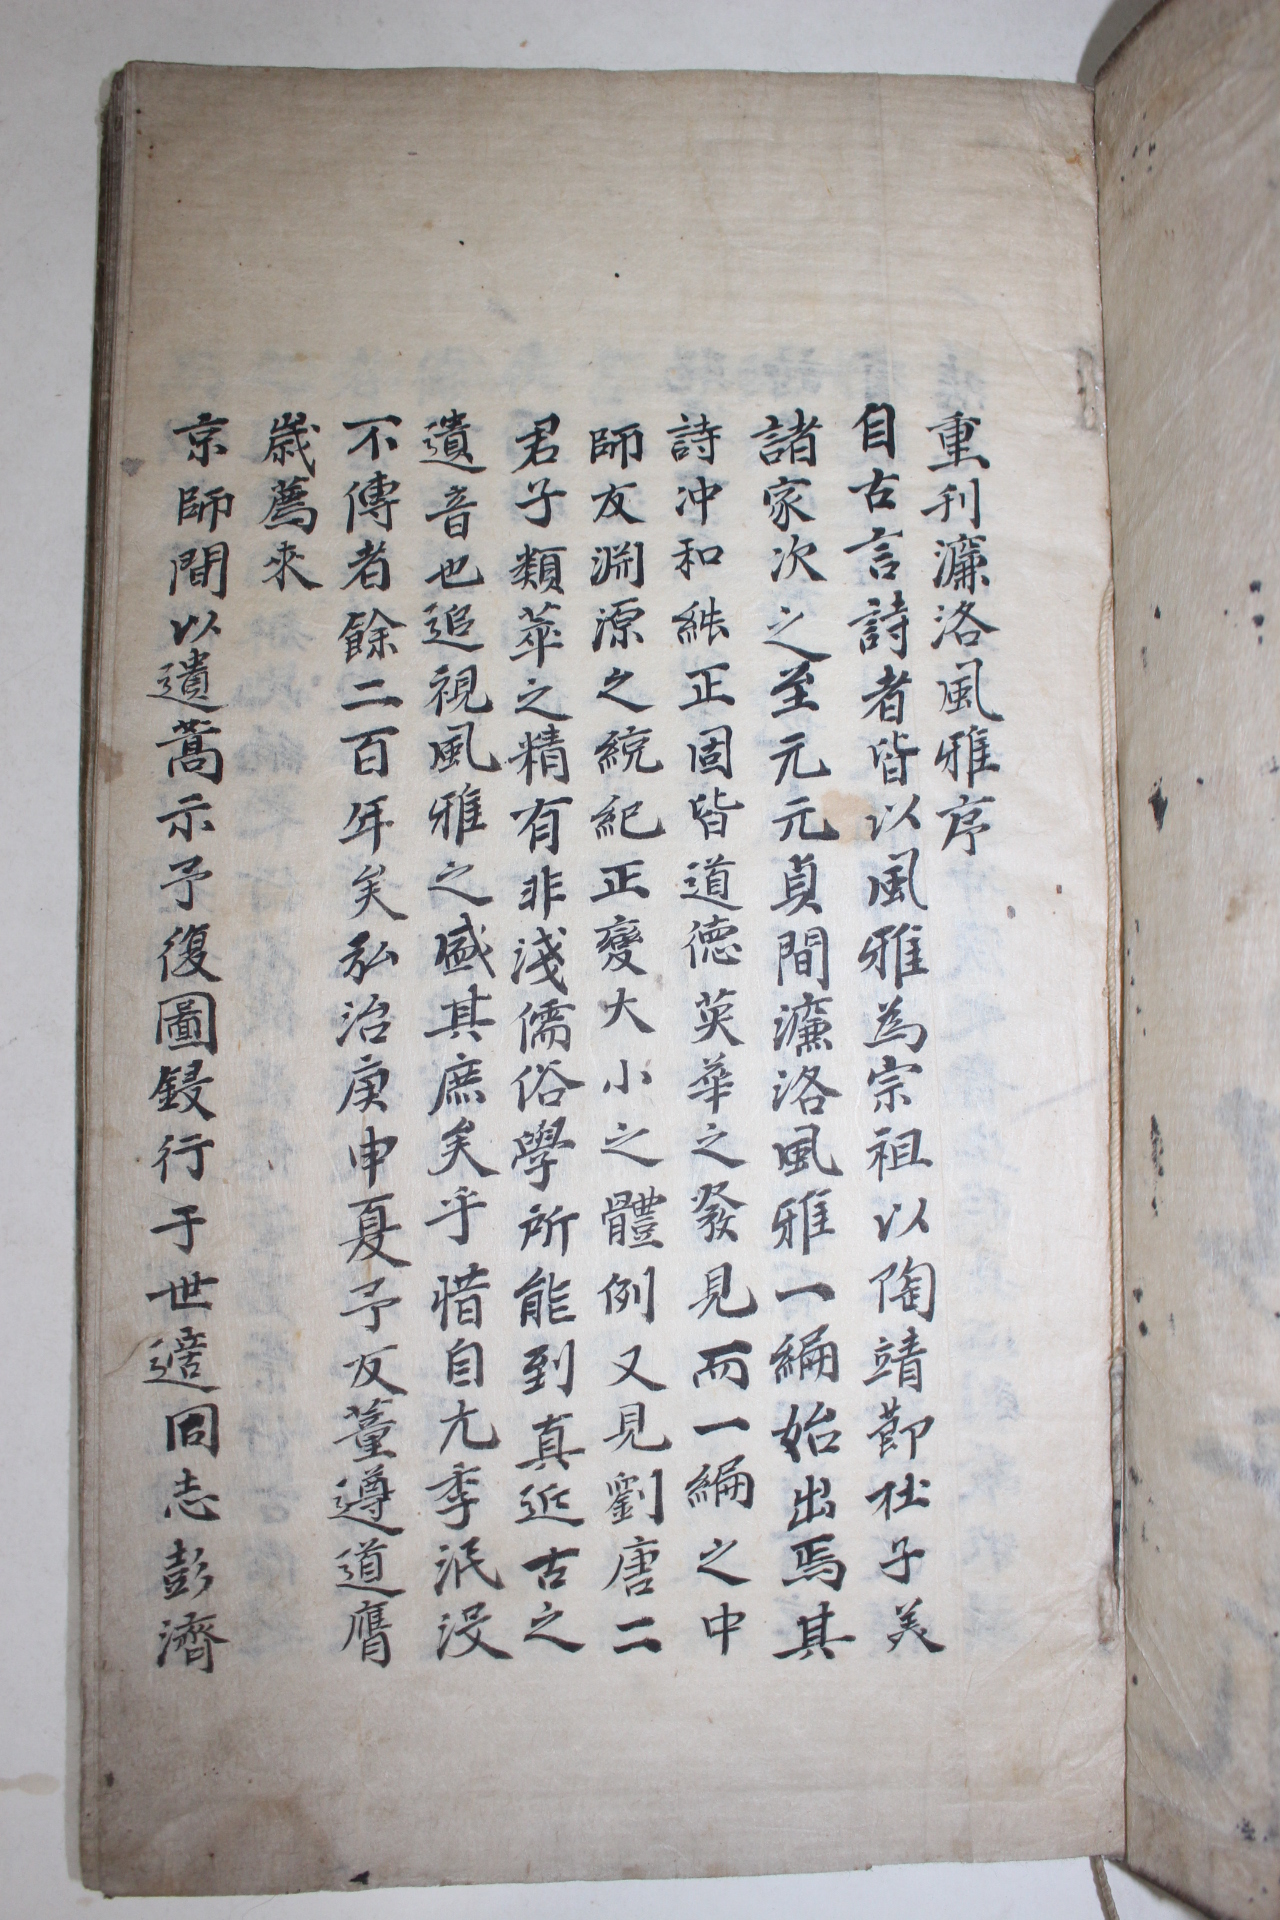 重刊濂洛風雅序
自古言詩者皆以風雅為宗祖以陶靖節杜子美
諸家次之至元元貞間濂洛風雅一編始出焉其
詩冲和純正固皆道德英華之發見而一編之中
師友淵源之統紀正變大小之體例又見劉唐二
君子類萃之精有非淺儒俗學所能到真近古之
遺音也追視風雅之盛其庶矣乎惜自元季泯没
不傳者餘二百年矣弘治庚申夏予友董遵道膺
歲薦來
京師間以遺藁示予復圖鋟行于世適同志彭濟